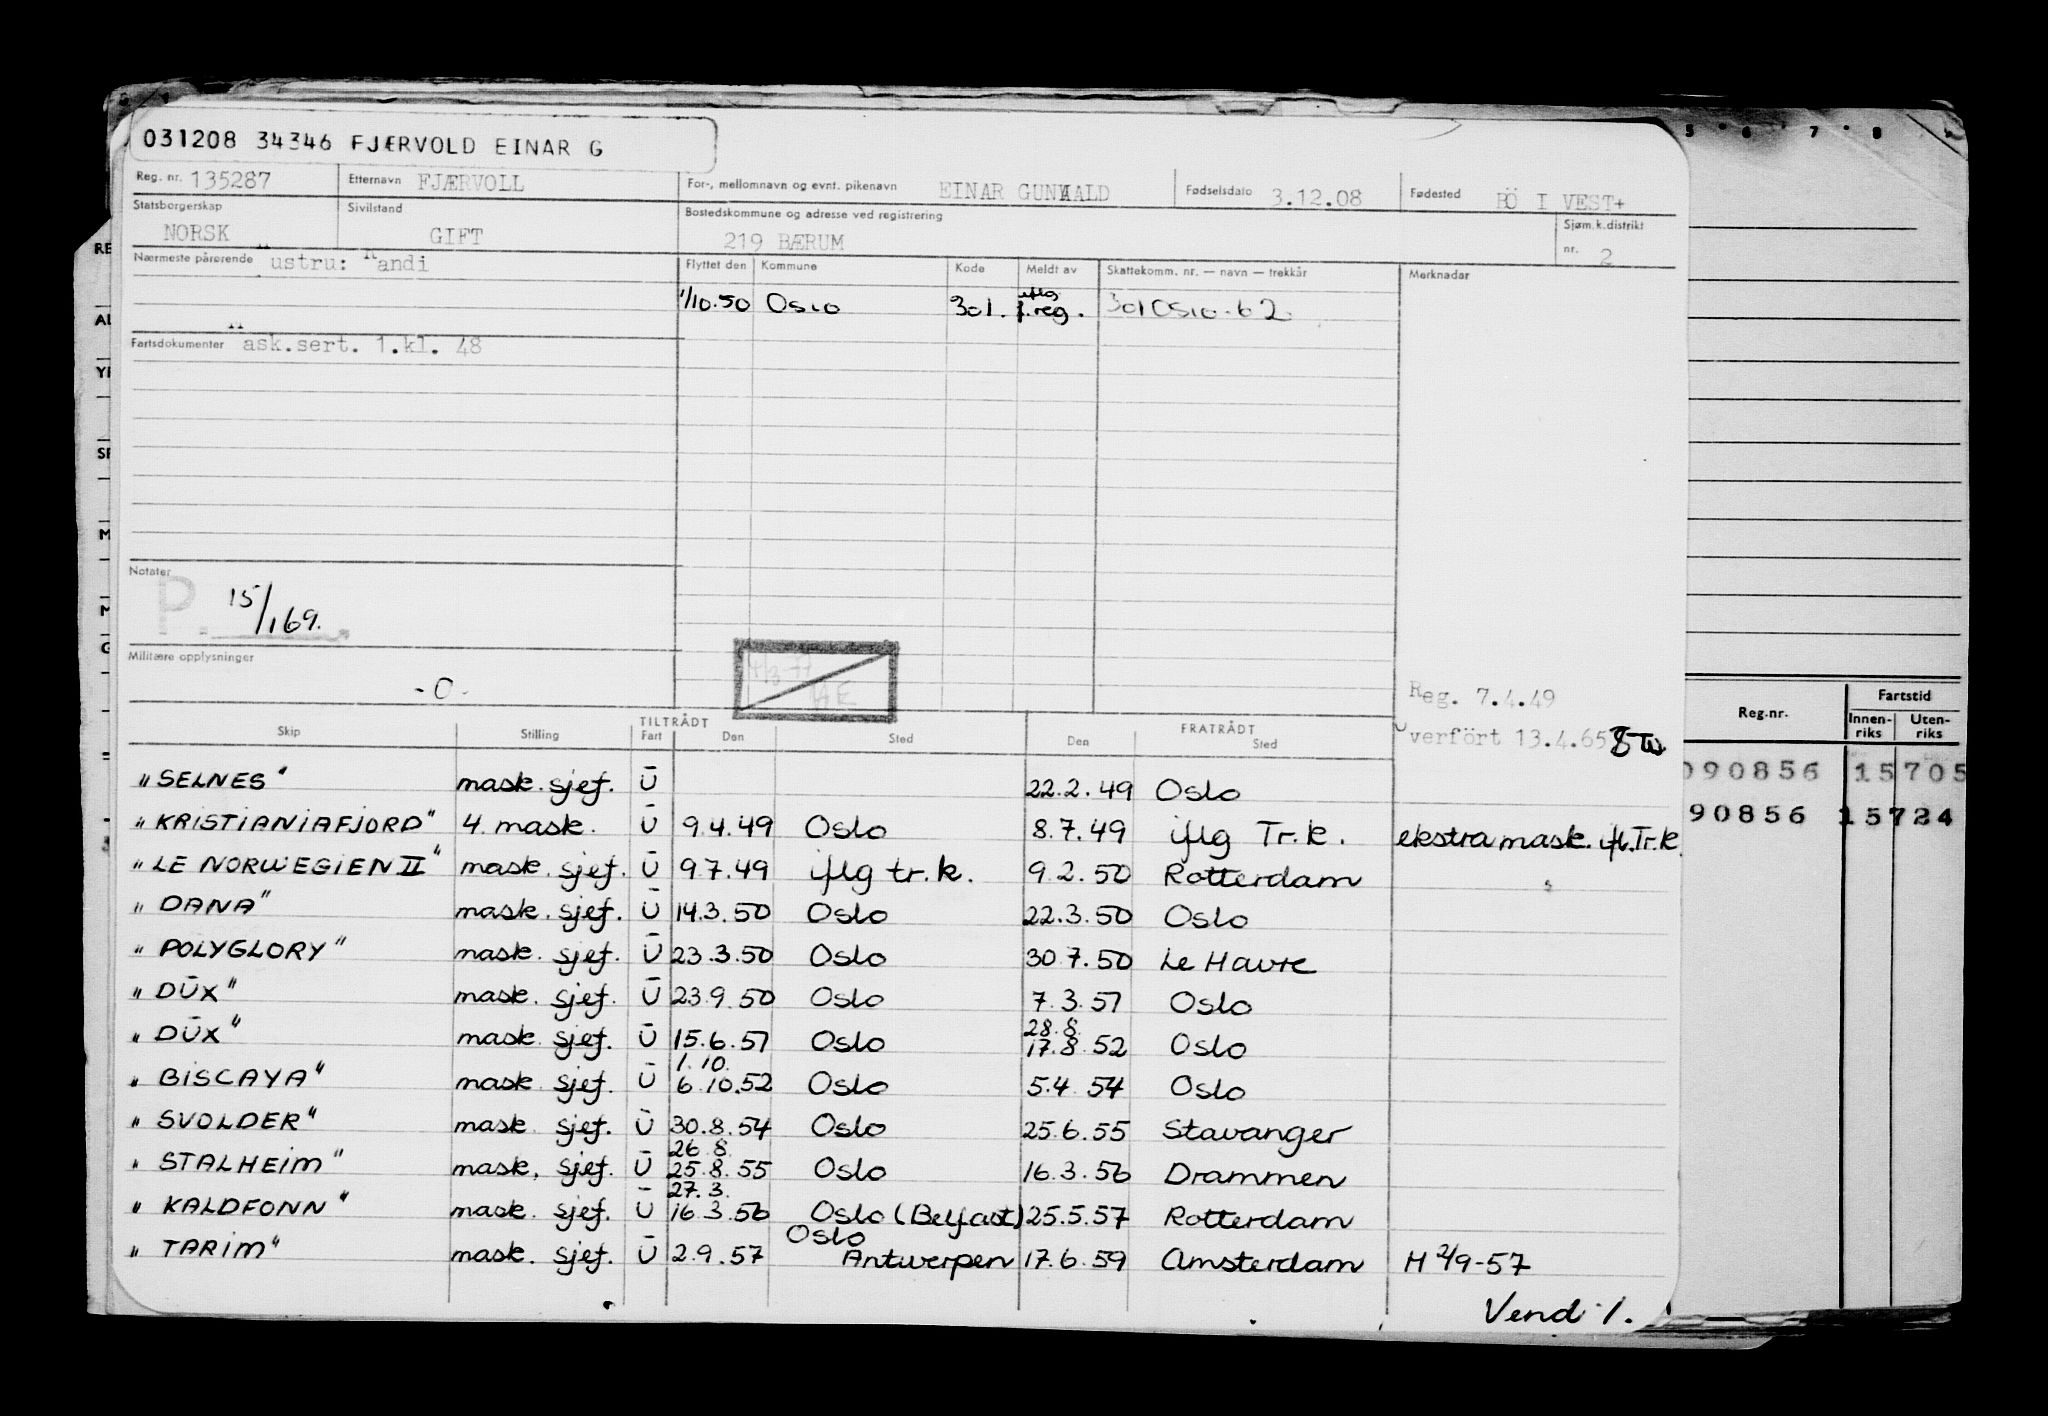 031208 34346 FJÆRVOLD EINAR G
Reg. nr. 135287 Etternavn FJÆRVOLL For-, mellomnavn og evnt. pikenavn EINAR GUNVALD Fødselsdato 3.12.08 Fødested BÖ I VEST+
Statsborgerskap NORSK Sivilstand GIFT Bostedskommune og adresse ved registrering 219 BÆRUM Sjøm.k.distrikt nr. 2
Nærmeste pårørende Hustru: Randi Flyttet den Kommune Kode Meldt av Skattekomm. nr. — navn — trekkår Merknader
1/10.50 Oslo 301. iflg f.reg. 301 Oslo - 62
Fartsdokumenter Mask.sert. 1.kl. 48
Notater
P. 15/1 69.
Militære opplysninger
- 0 -
Reg. 7.4.49
Overfört 13.4.65
TILTRÅDT FRATRÅDT
Skip Stilling Fart Den Sted Den Sted
"SELNES" mask. sjef. U 22.2.49 Oslo
"KRISTIANIAFJORD" 4. mask. U 9.4.49 Oslo 8.7.49 iflg Tr.k. ekstra mask. ifl. Tr.k.
"LE NORWEGIEN II" mask. sjef. U 9.7.49 iflg tr.k. 9.2.50 Rotterdam
"DANA" mask. sjef. U 14.3.50 Oslo 22.3.50 Oslo
"POLYGLORY" mask. sjef. U 23.3.50 Oslo 30.7.50 Le Havre
"DUX" mask. sjef. U 23.9.50 Oslo 7.3.51 Oslo
28.8.
"DUX" mask. sjef. U 15.6.51 Oslo 17.8.52 Oslo
1.10.
"BISCAYA" mask. sjef. U 6.10.52 Oslo 5.4.54 Oslo
"SVOLDER" mask. sjef. U 30.8.54 Oslo 25.6.55 Stavanger
26.8.
"STALHEIM" mask. sjef. U 25.8.55 Oslo 16.3.56 Drammen
27.3.
"KALDFONN" mask. sjef. U 16.3.56 Oslo (Belfast) 25.5.57 Rotterdam
Oslo
"TARIM" mask. sjef. U 2.9.57 Antwerpen 17.6.59 Amsterdam H 2/9-57
Vend /.
Reg.nr. Fartstid
Innen-riks Uten-riks
090856 15705
90856 15724